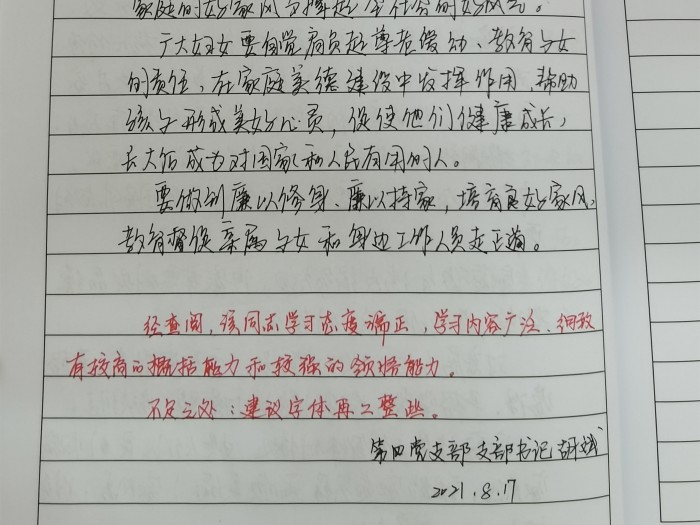 家庭的好家风支撑起全社会的好风气。
广大妇女要自觉肩负起尊老爱幼、教育子女
的责任，在家庭美德建设中发挥作用，帮助
孩子形成美好心灵，促使他们健康成长，
长大后成为对国家和人民有用的人。
要做到廉以修身、廉以持家，培育良好家风，
教育督促亲属子女和身边工作人员走正道。
经查阅，该同志学习态度端正，学习内容广泛、细致
有较高的概括能力和较强的领悟能力。
不足之处：建议字体再工整些。
第四党支部 支部书记 胡斌
2021.8.17